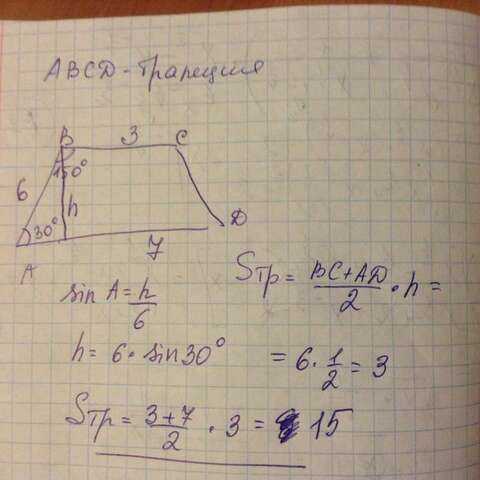 ABCD - трапеция
B 3 C
150°
6 h
30° D
A 7
Sтр = BC+AD/2 · h =
sin A = h/6
h = 6 · sin30° = 6 · 1/2 = 3
Sтр = 3+7/2 · 3 = 15